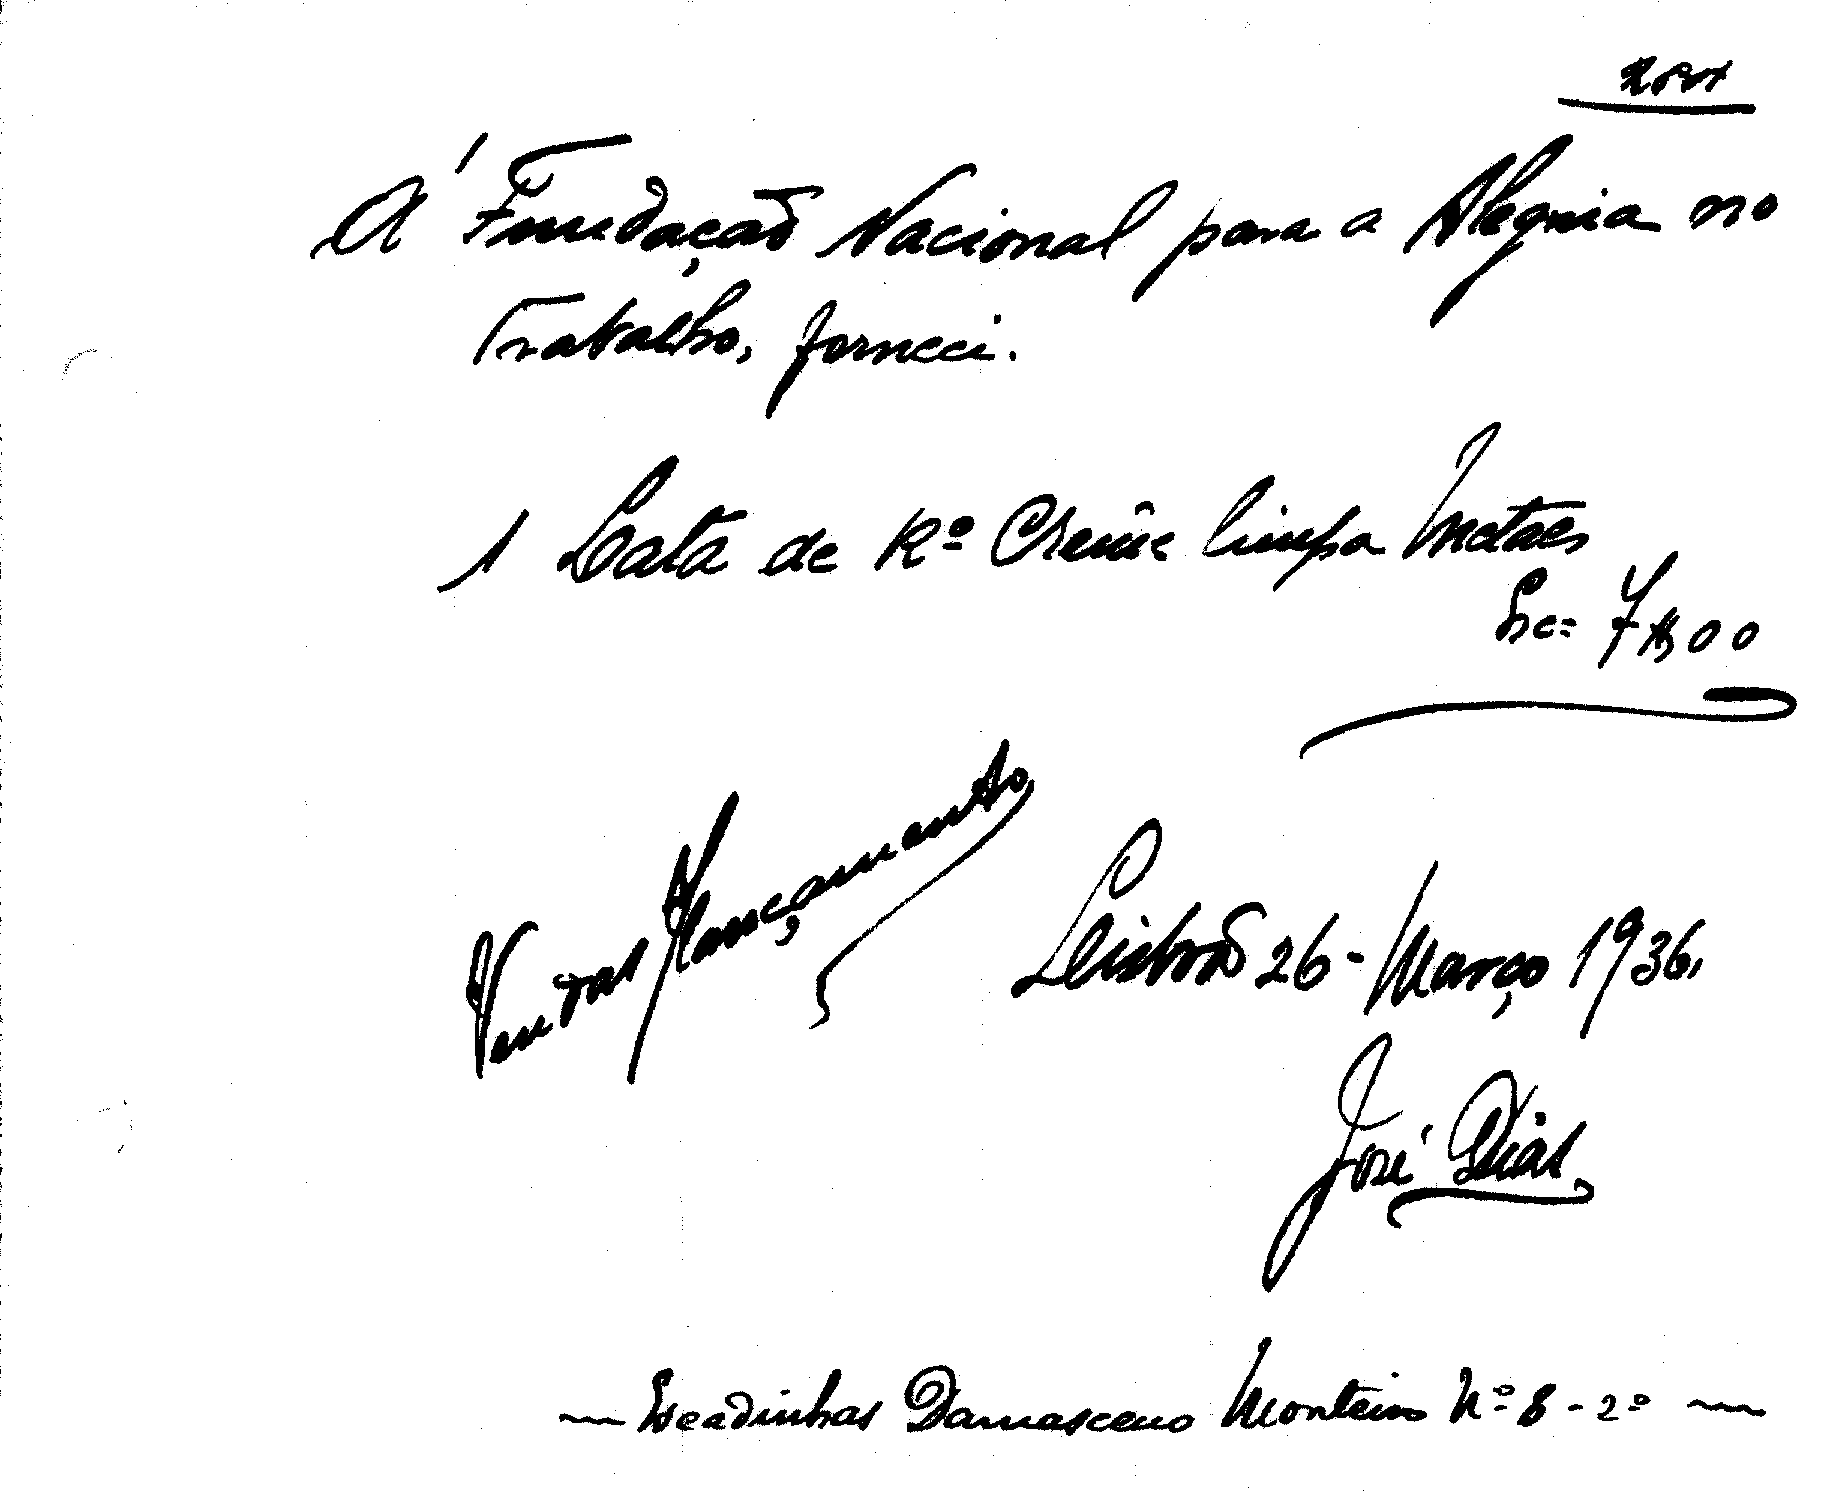 Á Fundação Nacional para a Alegria no
Trabalho, forneci.
1 Lata de Kº Crême limpa Metaes
Esc= 7$00
Lisboa 26 - Março 1936,
José Dias
— Escadinhas Damasceno Monteiro Nº 8 - 2º —